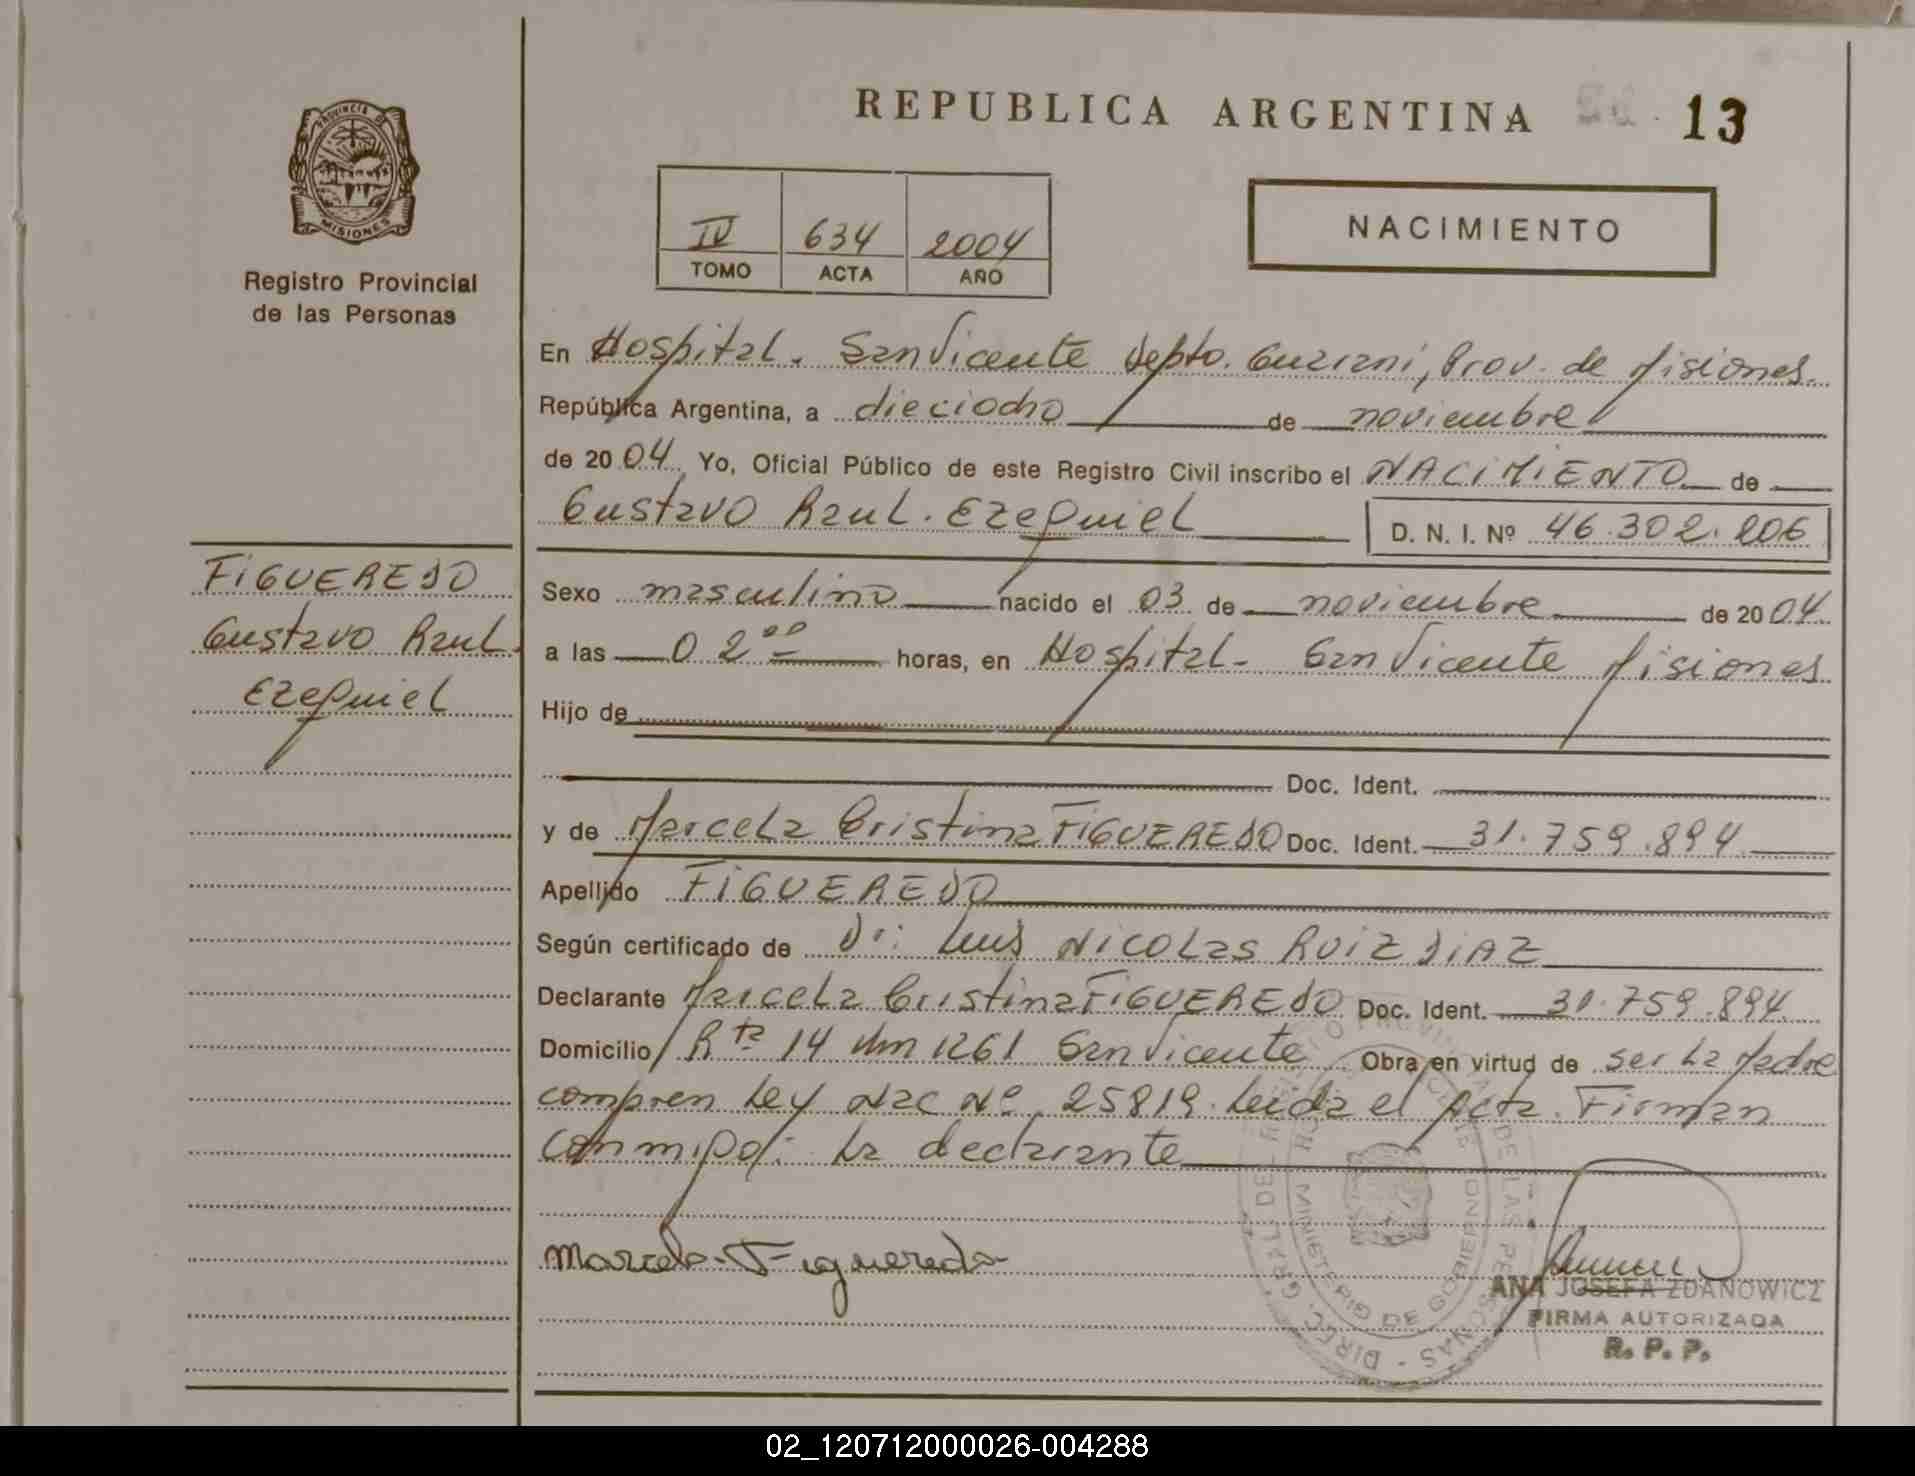 REPUBLICA ARGENTINA
13
PROVINCIA DE
MISIONES
Registro Provincial
de las Personas
IV 634 2004
TOMO ACTA AÑO
NACIMIENTO
En Hospital. San Vicente Depto. Guarani, Prov. de Misiones.
República Argentina, a dieciocho de noviembre
de 2004. Yo, Oficial Público de este Registro Civil inscribo el NACIMIENTO de
Gustavo Raul. Ezequiel D. N. I. Nº 46.302.206
FIGUEREDO
Gustavo Raul.
Ezequiel
Sexo masculino nacido el 03 de noviembre de 2004.
a las 02⁰⁰ horas, en Hospital - San Vicente Misiones
Hijo de
Doc. Ident.
y de Marcela Cristina FIGUEREDO Doc. Ident. 31.759.894
Apellido FIGUEREDO
Según certificado de Dr: Luis Nicolas RUIZ DIAZ
Declarante Marcela Cristina FIGUEREDO Doc. Ident. 31.759.894
Domicilio Rta 14 km 1261 San Vicente Obra en virtud de ser la Madre
compren Ley Nac Nº 25819. Leida el Acta. Firman
conmigo: La declarante
Marcela Figueredo
ANA JOSEFA ZDANOWICZ
FIRMA AUTORIZADA
R. P. P.
DIREC. GRAL. DE REGISTRO PROVINCIAL DE LAS PERSONAS
MINISTERIO DE GOBIERNO
02_120712000026-004288